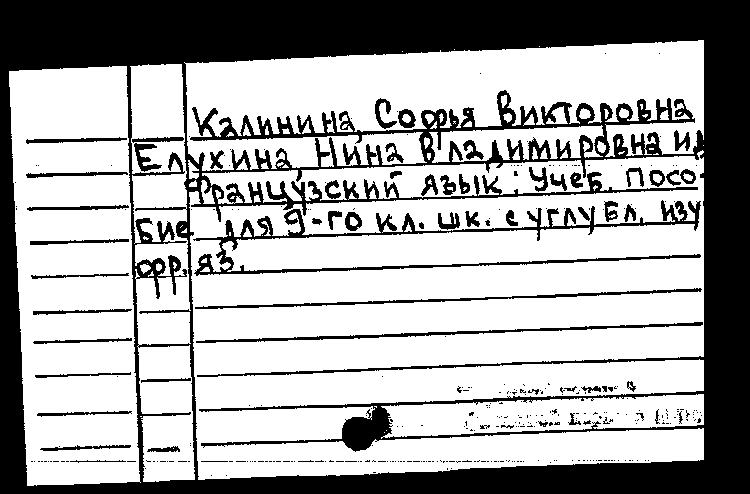 Калинина, Софья Викторовна
Елухина, Нина Владимировна и д
Французский язык: Учеб. посо-
бие для 9-го кл. шк. с углубл. изу
фр. яз.